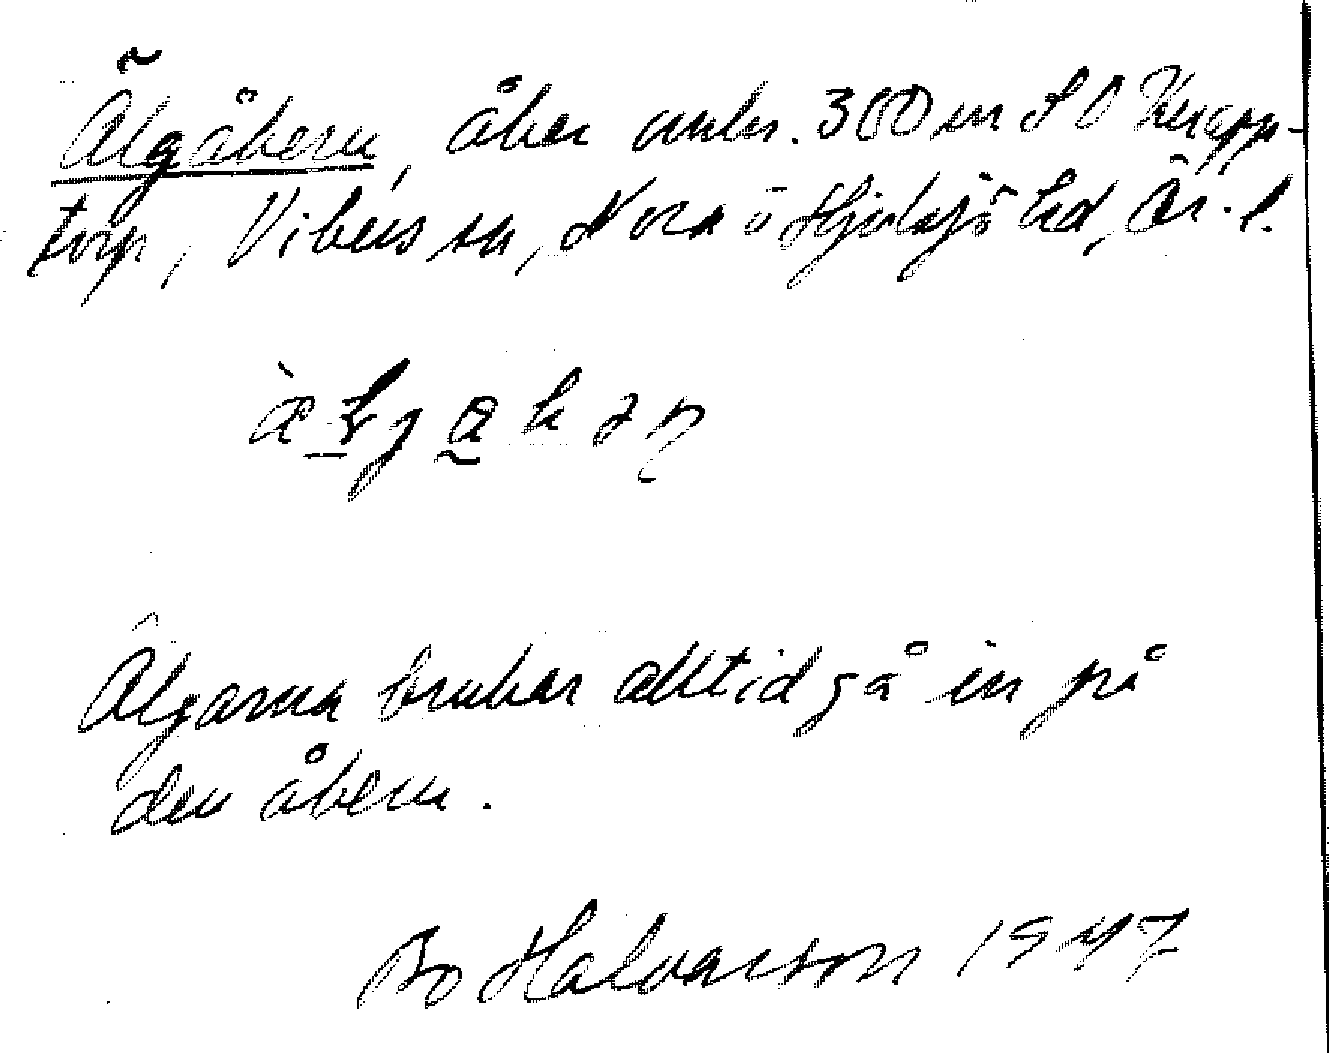 Älgåkern, åker omkr. 300 m S O Knapp-
torp, Vikers sn, Nora o Hjulsjö hd, Ör. l.
Älgarna brukar alltid gå in på
den åkern.
Bo Halvarson 1947